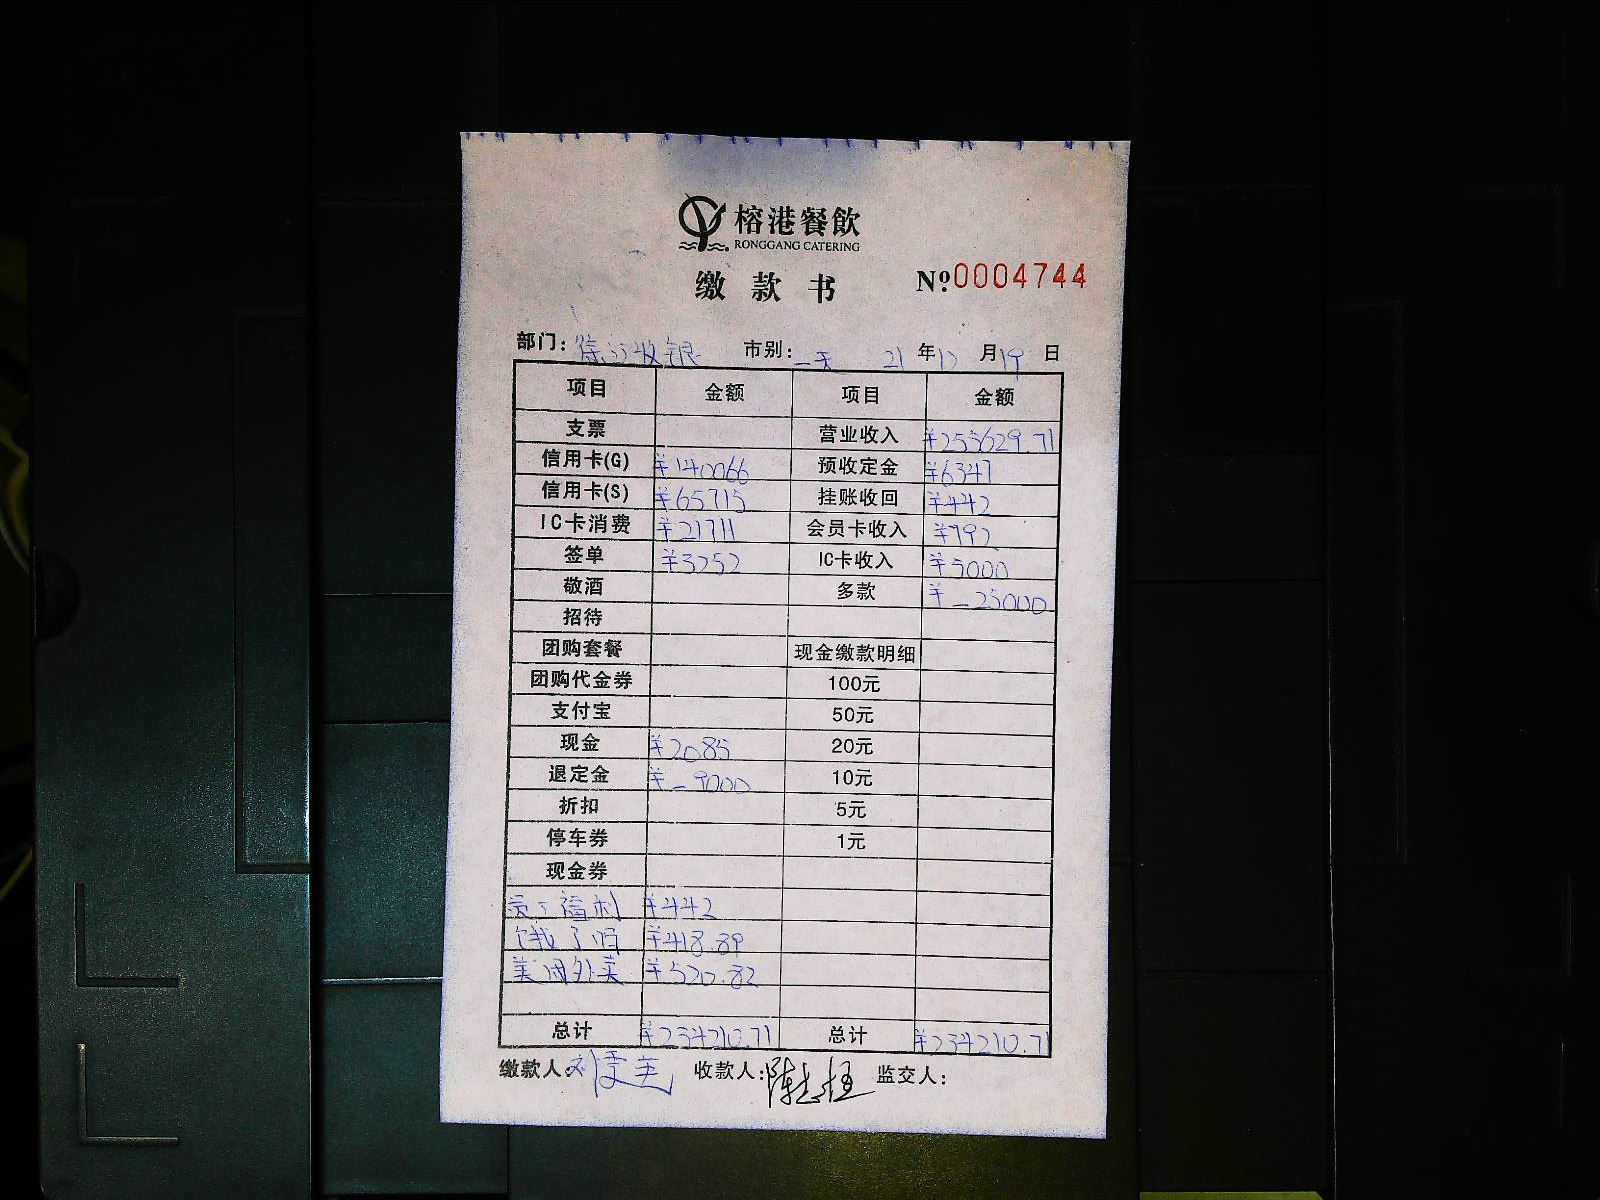 榕港餐飲
RONGGANG CATERING
缴款书 №0004744
部门: 徐汇收银 市别: 一天 21年12月19日
项目 金额 项目 金额
支票 营业收入 ¥255629.71
信用卡(G) ¥140066 预收定金 ¥6347
信用卡(S) ¥65715 挂账收回 ¥442
IC卡消费 ¥21711 会员卡收入 ¥792
签单 ¥3252 IC卡收入 ¥5000
敬酒 多款 ¥-25000
招待
团购套餐 现金缴款明细
团购代金券 100元
支付宝 50元
现金 ¥2085 20元
退定金 ¥-9000 10元
折扣 5元
停车券 1元
现金券
员工福利 ¥442
饿了吗 ¥418.89
美团外卖 ¥520.82
总计 ¥234210.71 总计 ¥234210.71
缴款人: 收款人: 监交人: